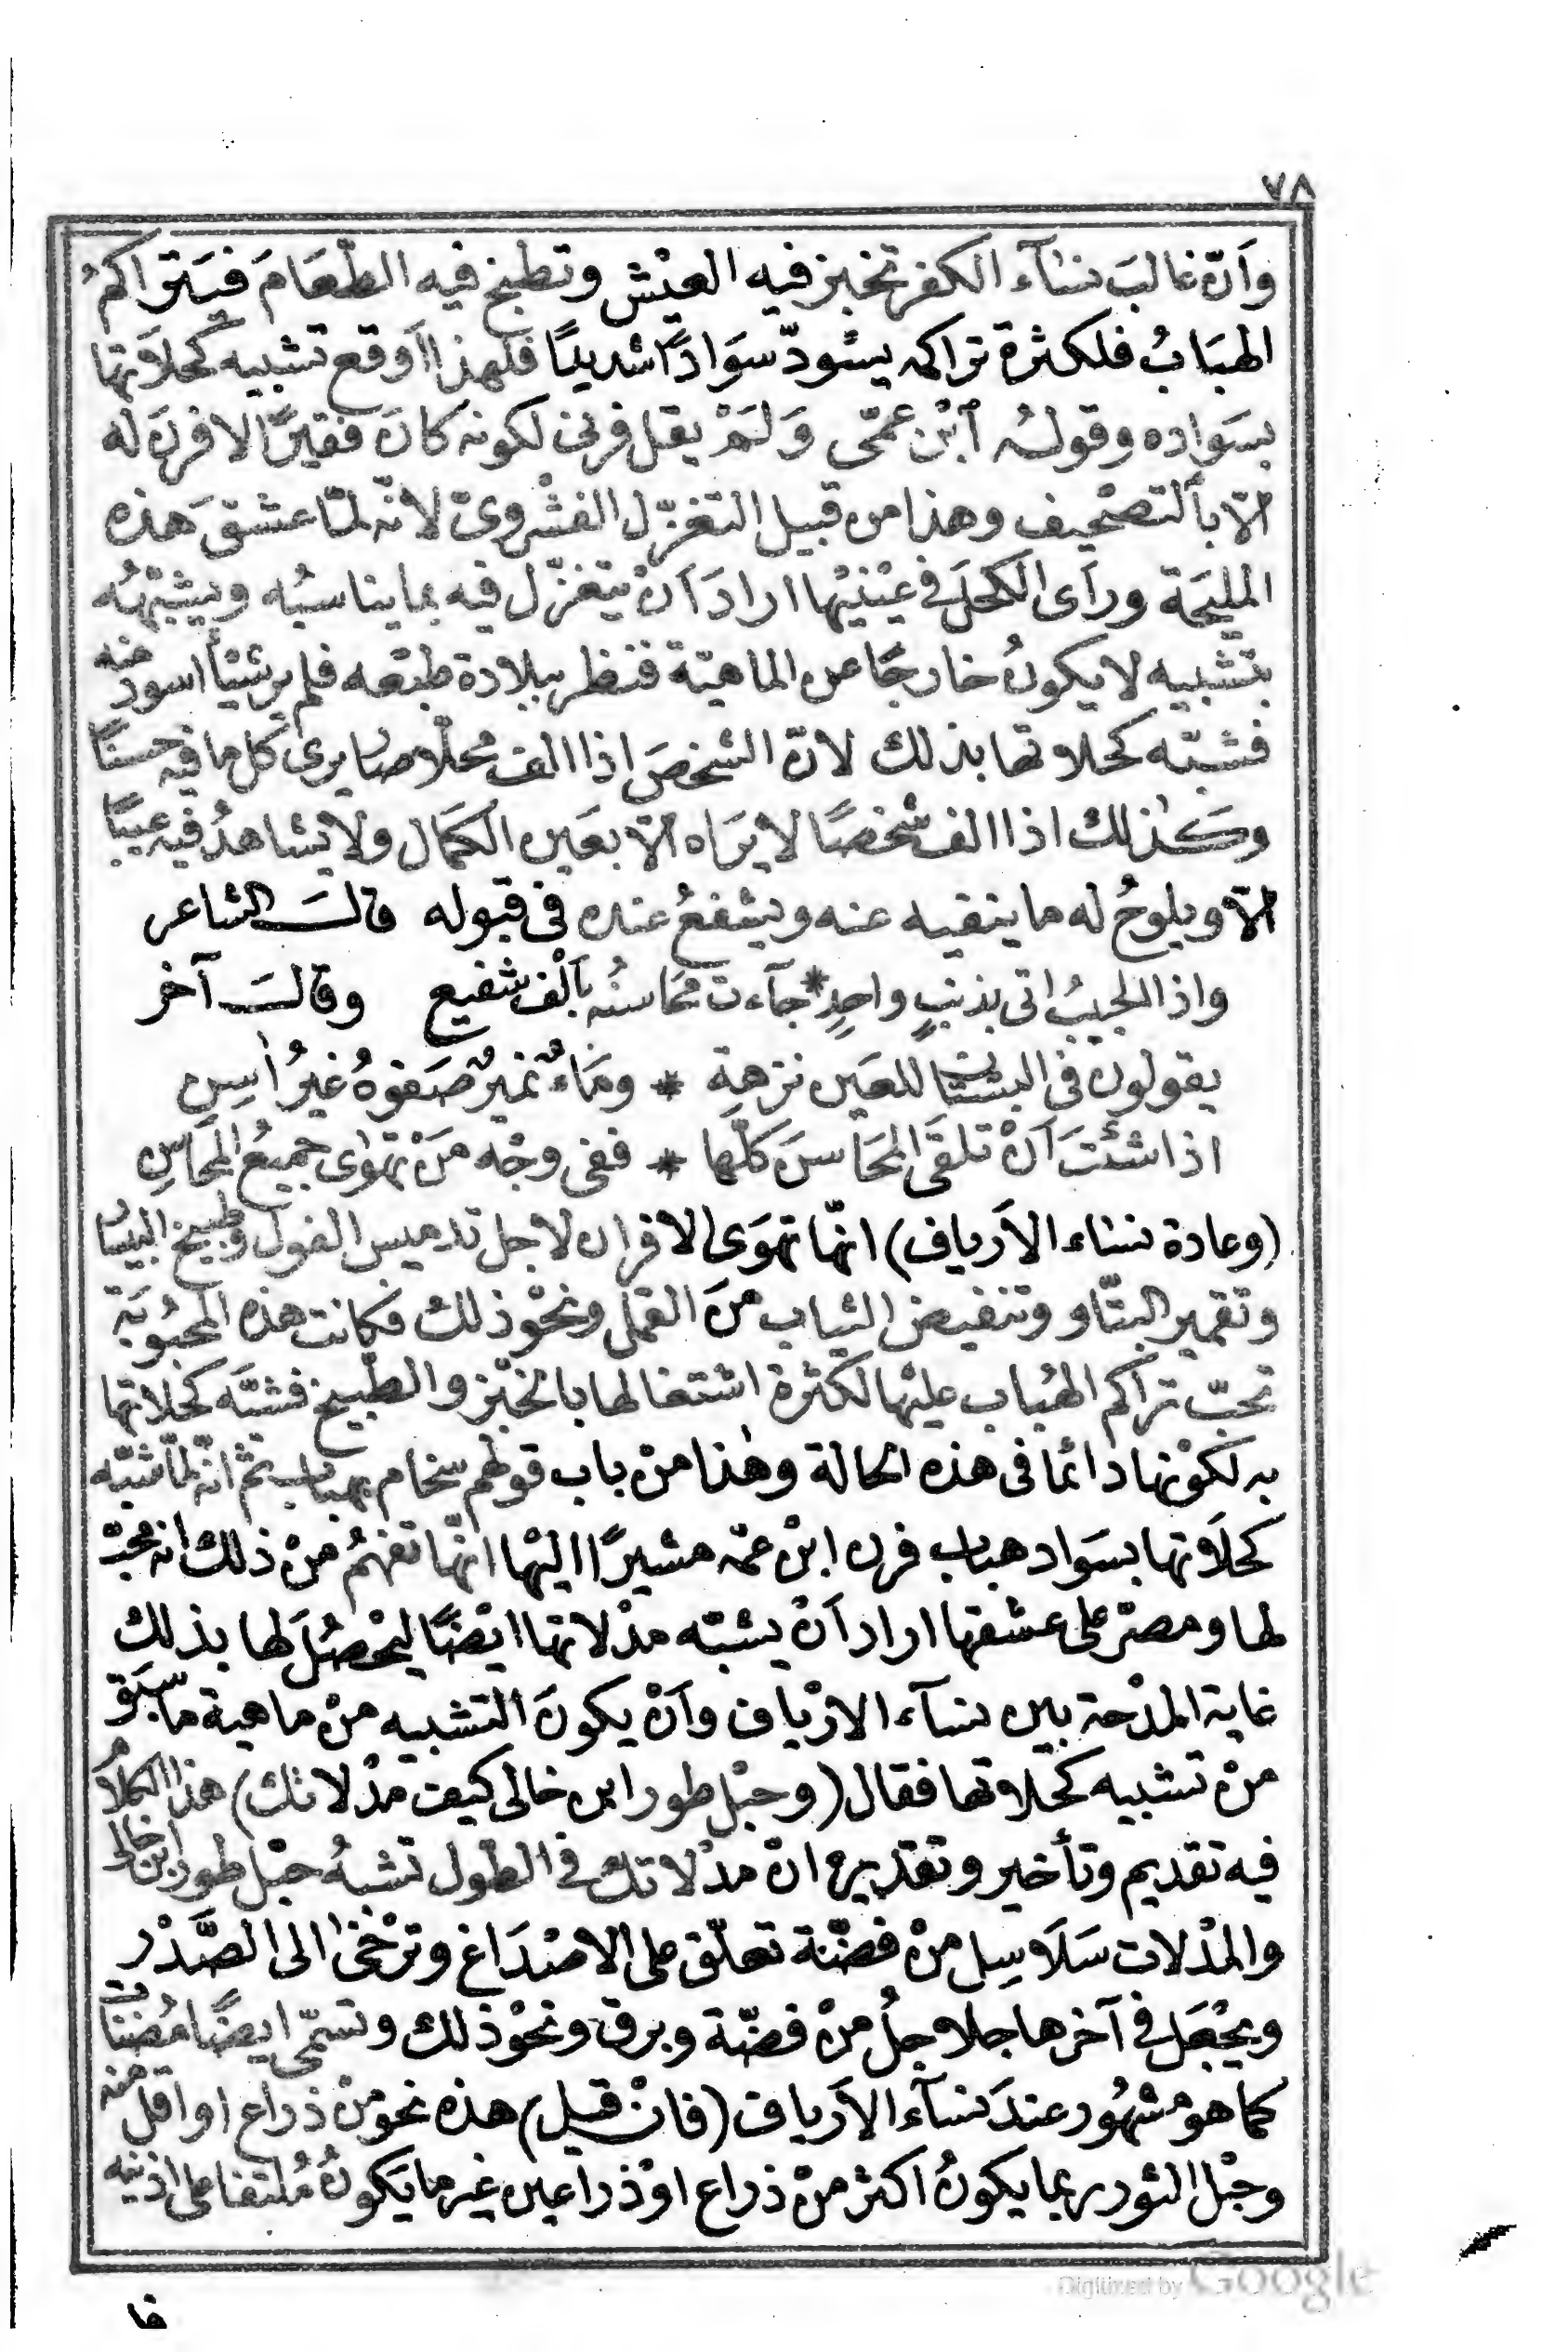 ٧٨
وَاَنّ غالبَ نسَآء الكفر تخبز فيه العيْش وتطبخ فيه الطّعَامَ فيَتراكمُ
الهبَابُ فلكثرة تراكمه يسْودّ سوَادًا شديدًا فلهذا اَوقع تشبيه كُحلاَتها
بسَواده وقولهُ اَبْن عمّى وَلَمْ يقل فرنى لكونه كَانَ فقيرًا لا فرنَ له
الاّ بالتصْحيف وهذا من قبيل التغزّل الفشْروىّ لانّه لمّا عشق هذه
المليحَة ورأى الكحلَ فى عيْنيْها ارادَ اَنْ يتغزّل فيه بما يناسبُه ويشبّهُه
بتشبيه لا يكونُ خارجًا عن الماهيّة فنظر ببلادة طبْعه فلم ير شيْأ اسودَ منه
فشبّه كحلاتها بذلك لانّ الشخصَ اذا الف محلّا صَار يرى كل ما فيه حسنًا
وكذلك اذا الف شخصًا لا يرَاه الاّ بعَين الكمَال ولا يشاهدُ فيه عيبًا
الاّ ويلوحُ له ما ينقيه عنه ويشفعُ عنده فى قبوله قالَ الشاعر
واذا الحبيبُ اتى بذنبٍ واحدٍ * جآءت محَاسنُه بألْف شفيع وقالَ آخر
يقولون فى البستان للعَين نزهة * ومَاءٌ نميرٌ صَفوهُ غيرُ اسِن
اذا شئتَ اَنْ تلقَى المحَاسنَ كلّها * ففى وجْه مَنْ تهوٰى جميعُ المحَاسِنِ
(وعادة نسَاء الاَرياف) انّها تهوَى الافران لاجل تدميس الفول وطبيخ البيسَار
وتقمير البتّاو وتنفيض الثياب منَ القمل ونحْو ذلك فكانت هذه المحبُوبَة
تحبّ تراكم الهبَاب عليْها لكثرة اشتغالها بالخبْز والطّبيخ فشبّه كحلاتها
به لكوْنها دائما فى هذه الحالة وهٰذا منْ باب قولهم سخام بهباب ثمّ انّه لمّا شبّه
كحلاَتها بسَواد هباب فرن ابْن عمّه مشيرًا اليْها انّها تفهمُ منْ ذلك انه محبّ
لها ومصرّ على عشقها اراد اَنْ يشبّه مدْلاتها ايْضًا ليحْصُلَ لها بذلك
غاية المدْحة بين نسآء الارْياف وَاَنْ يكونَ التشبيه منْ ماهية ما سَبَق
منْ تشبيه كحْلاتها فقال (وحبْل طور ابن خالى كيف مدْلاتك) هذا الكلاَمُ
فيه تقديم وتأخير وتقديره انّ مدْلاتك فى الطّول تشبهُ حبْل طور ابن خالى
والمدْلات سَلاَسِل منْ فضّة تعلّق على الاصْدَاغ وترْخٰى الى الصَّدْر
ويجْعَل فى آخرها جلاجلُ منْ فضّة وبرق ونحْو ذلك وتسمّى ايضًا مُضنيات
كما هو مشْهُور عندَ نسآء الاَرياف (فانْ قيل) هذه نحو منْ ذراع او اقل منه
وحبْل الثور ربما يكونُ اكثر منْ ذراع اوْ ذراعين غير ما يَكونُ مُلتفا على اذنيْه
فا
Digitized by Google